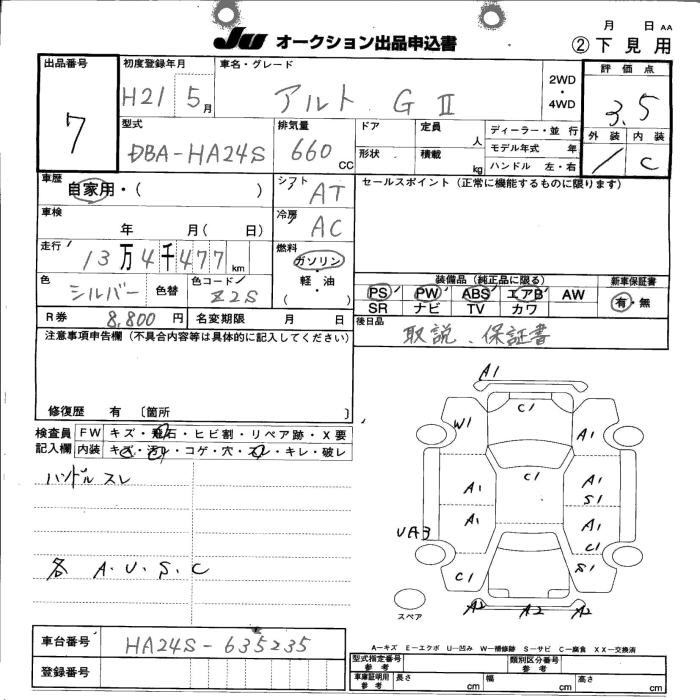 月 日 AA
JU オークション出品申込書 ②下見用
出品番号 7
初度登録年月 H21 5月
車名・グレード アルト GⅡ
2WD・4WD
評価点 3.5
外装 / 内装 C
型式 DBA-HA24S
排気量 660 CC
ドア 形状
定員 人
積載 kg
ディーラー・並行
モデル年式 年
ハンドル 左・右
車歴 自家用・( )
シフト AT
セールスポイント (正常に機能するものに限ります)
車検 年 月( 日)
冷房 AC
走行 13万4千477km
燃料 ガソリン・軽・油 ( )
色 シルバー 色替
色コード Z2S
装備品 (純正品に限る)
新車保証書
PS PW ABS エアB AW 有・無
SR ナビ TV カワ
R券 8,800円 名変期限 月 日
後日品 取説、保証書
注意事項申告欄 (不具合内容等は具体的に記入してください)
修復歴 有 〔箇所 〕
検査員記入欄
FW キズ・飛石・ヒビ割・リペア跡・X要
内装 キズ・汚レ・コゲ・穴・スレ・キレ・破レ
ハンドル スレ
各 A.U.S.C
A1
C1
W1
A1
C1
A1
A1
S1
A1
A1
UA3
C1
C1
S1
A2 A2 A2
スペア
A-キズ E-エクボ U-凹み W-補修跡 S-サビ C-腐食 XX-交換済
車台番号 HA24S-635235
登録番号
型式指定番号 参考
類別区分番号 参考
車庫証明用 参考 長さ cm 幅 cm 高さ cm